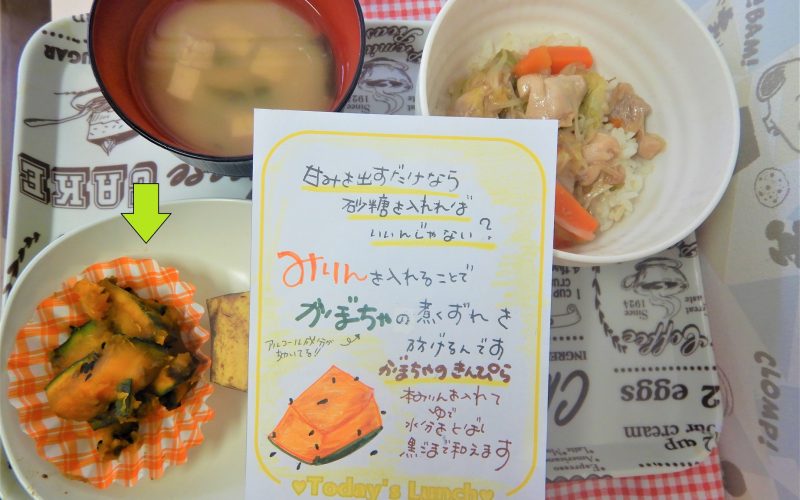 甘みを出すだけなら
砂糖を入れれば
いいんじゃない?
みりんを入れることで
かぼちゃの煮くずれを
アルコール成分が
効いてる!!
防げるんです
かぼちゃのきんぴら
みりんを入れて
ゆで
水分をとばし
黒ごまで和えます
♥Today's Lunch♥
SUGAR
CAKE
Since
1924
Since
1924
Coffee
1 CUP
INGRE
2 eggs
1/2 up
our cream
BAM!
CLOMP!